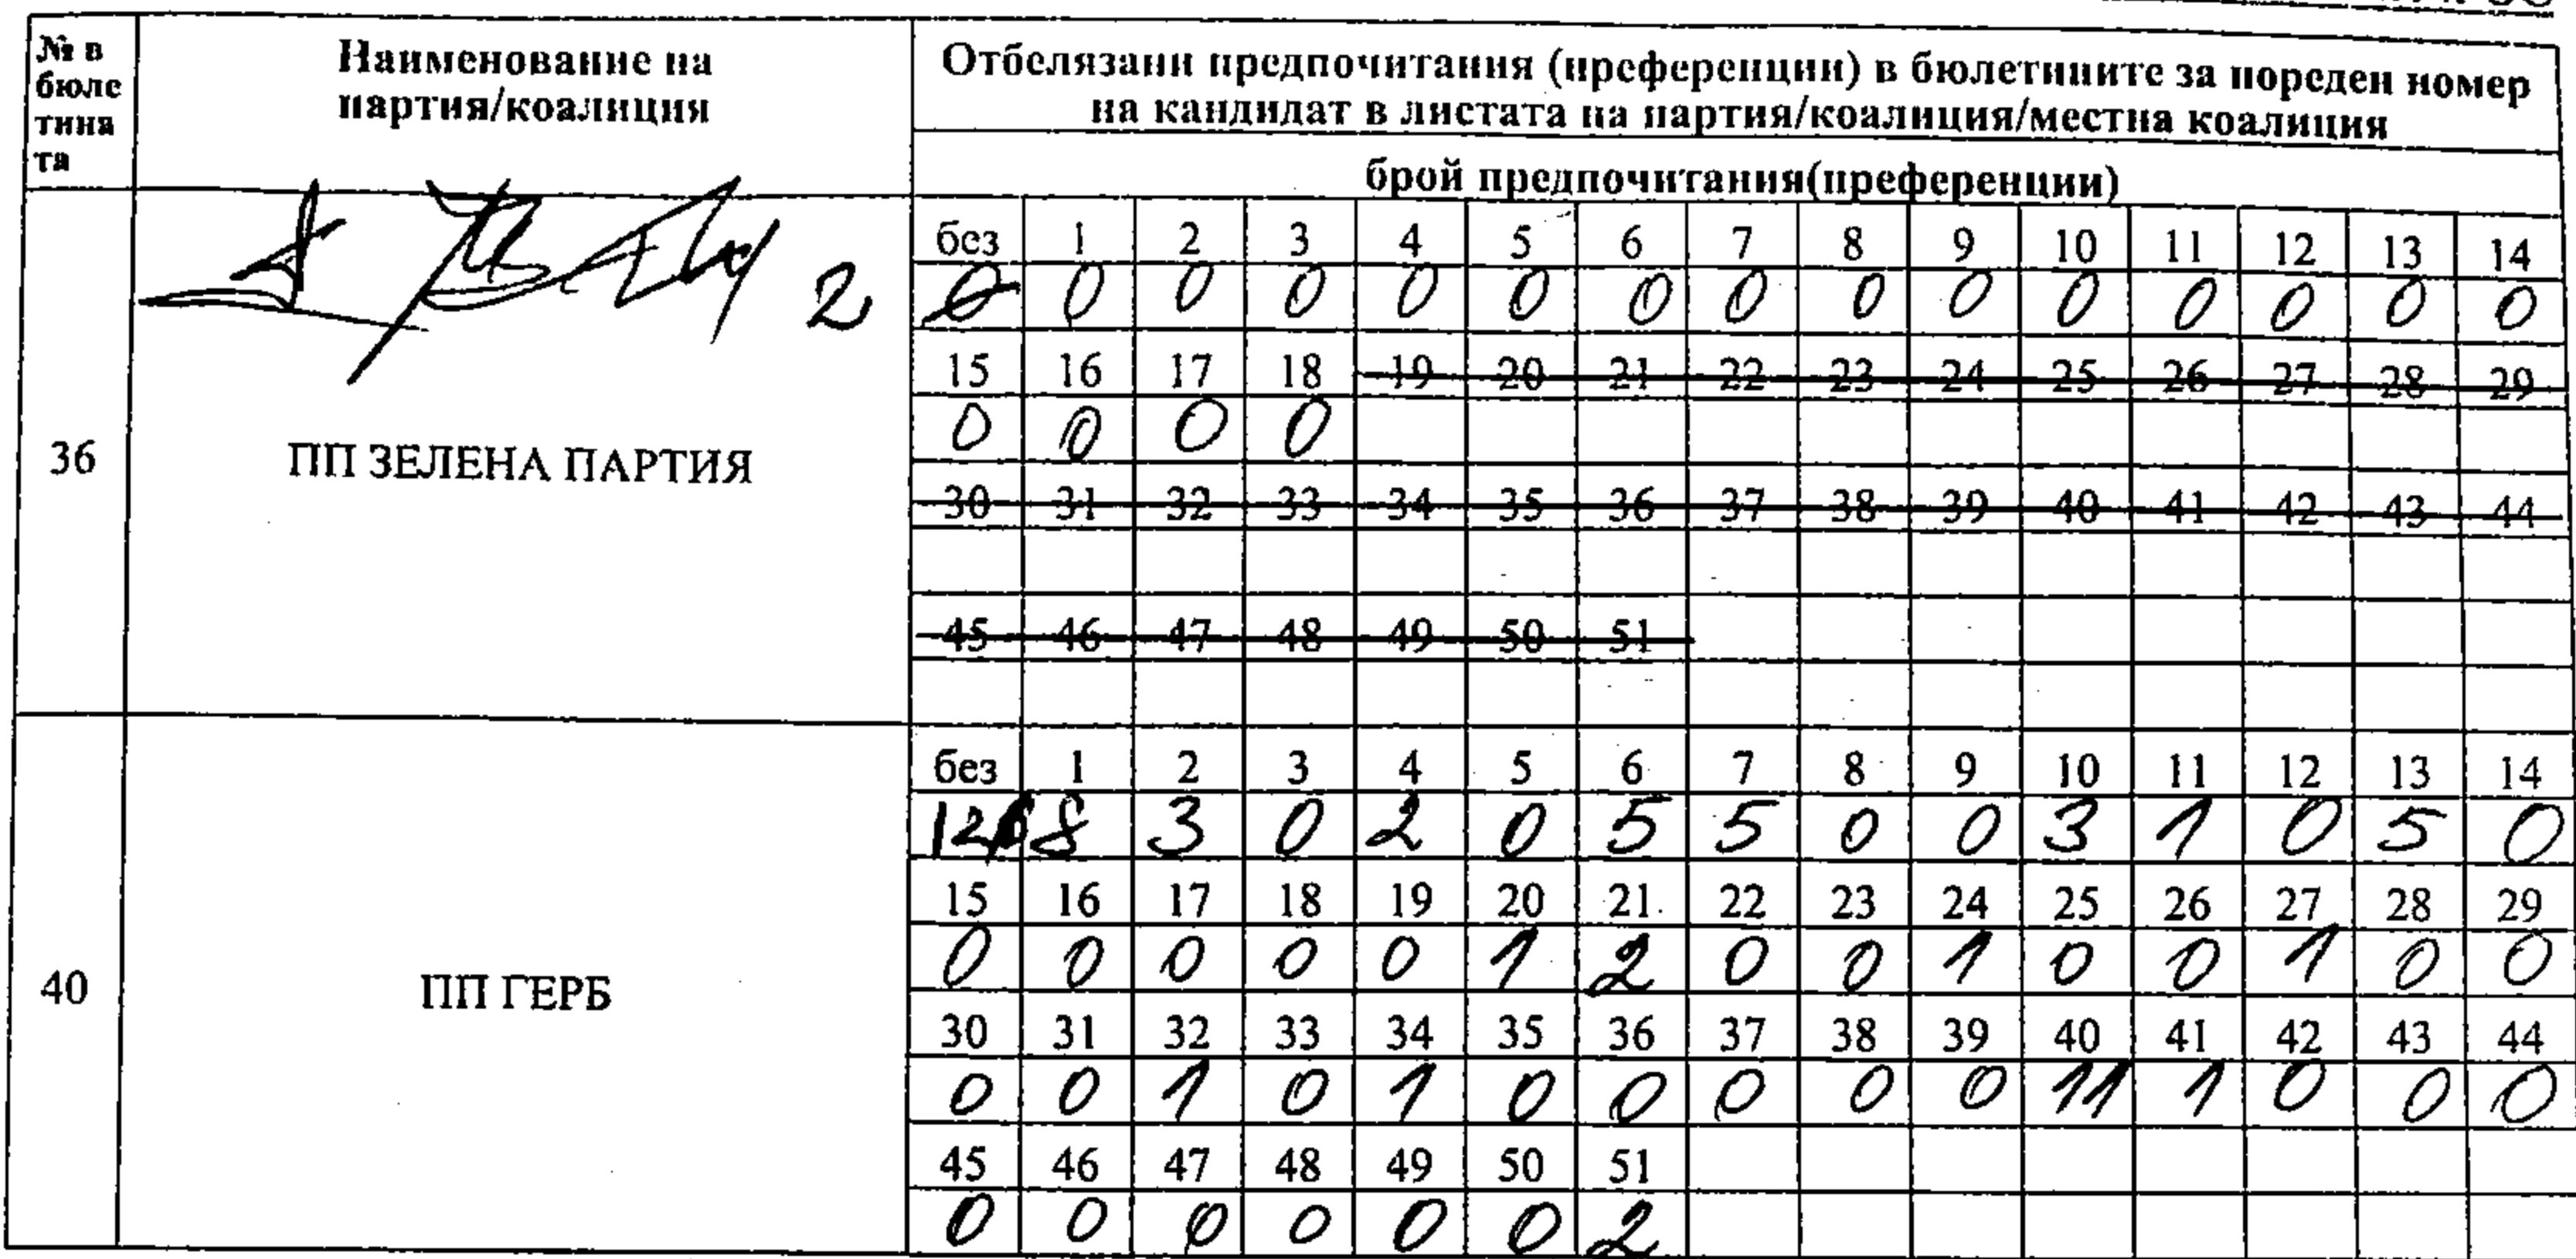 № в бюле тина та
Наименование на партия/коалиция
Отбелязани предпочитания (преференции) в бюлетините за пореден номер на кандидат в листата на партия/коалиция/местна коалиция
брой предпочитания(преференции)
36
ПП ЗЕЛЕНА ПАРТИЯ
2
без 1 2 3 4 5 6 7 8 9 10 11 12 13 14
0 0 0 0 0 0 0 0 0 0 0 0 0 0
15 16 17 18 19 20 21 22 23 24 25 26 27 28 29
0 0 0 0
30 31 32 33 34 35 36 37 38 39 40 41 42 43 44
45 46 47 48 49 50 51
40
ПП ГЕРБ
без 1 2 3 4 5 6 7 8 9 10 11 12 13 14
8 3 0 2 0 5 5 0 0 3 1 0 5 0
15 16 17 18 19 20 21 22 23 24 25 26 27 28 29
0 0 0 0 0 1 2 0 0 1 0 0 1 0 0
30 31 32 33 34 35 36 37 38 39 40 41 42 43 44
0 0 1 0 1 0 0 0 0 0 11 1 0 0 0
45 46 47 48 49 50 51
0 0 0 0 0 0 2